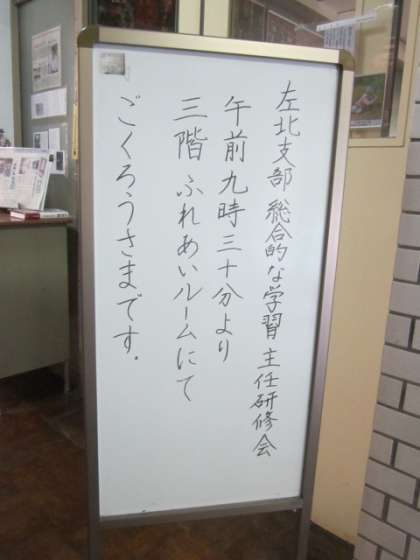 左北支部 総合的な学習 主任研修会
午前九時三十分より
三階 ふれあいルームにて
ごくろうさまです.